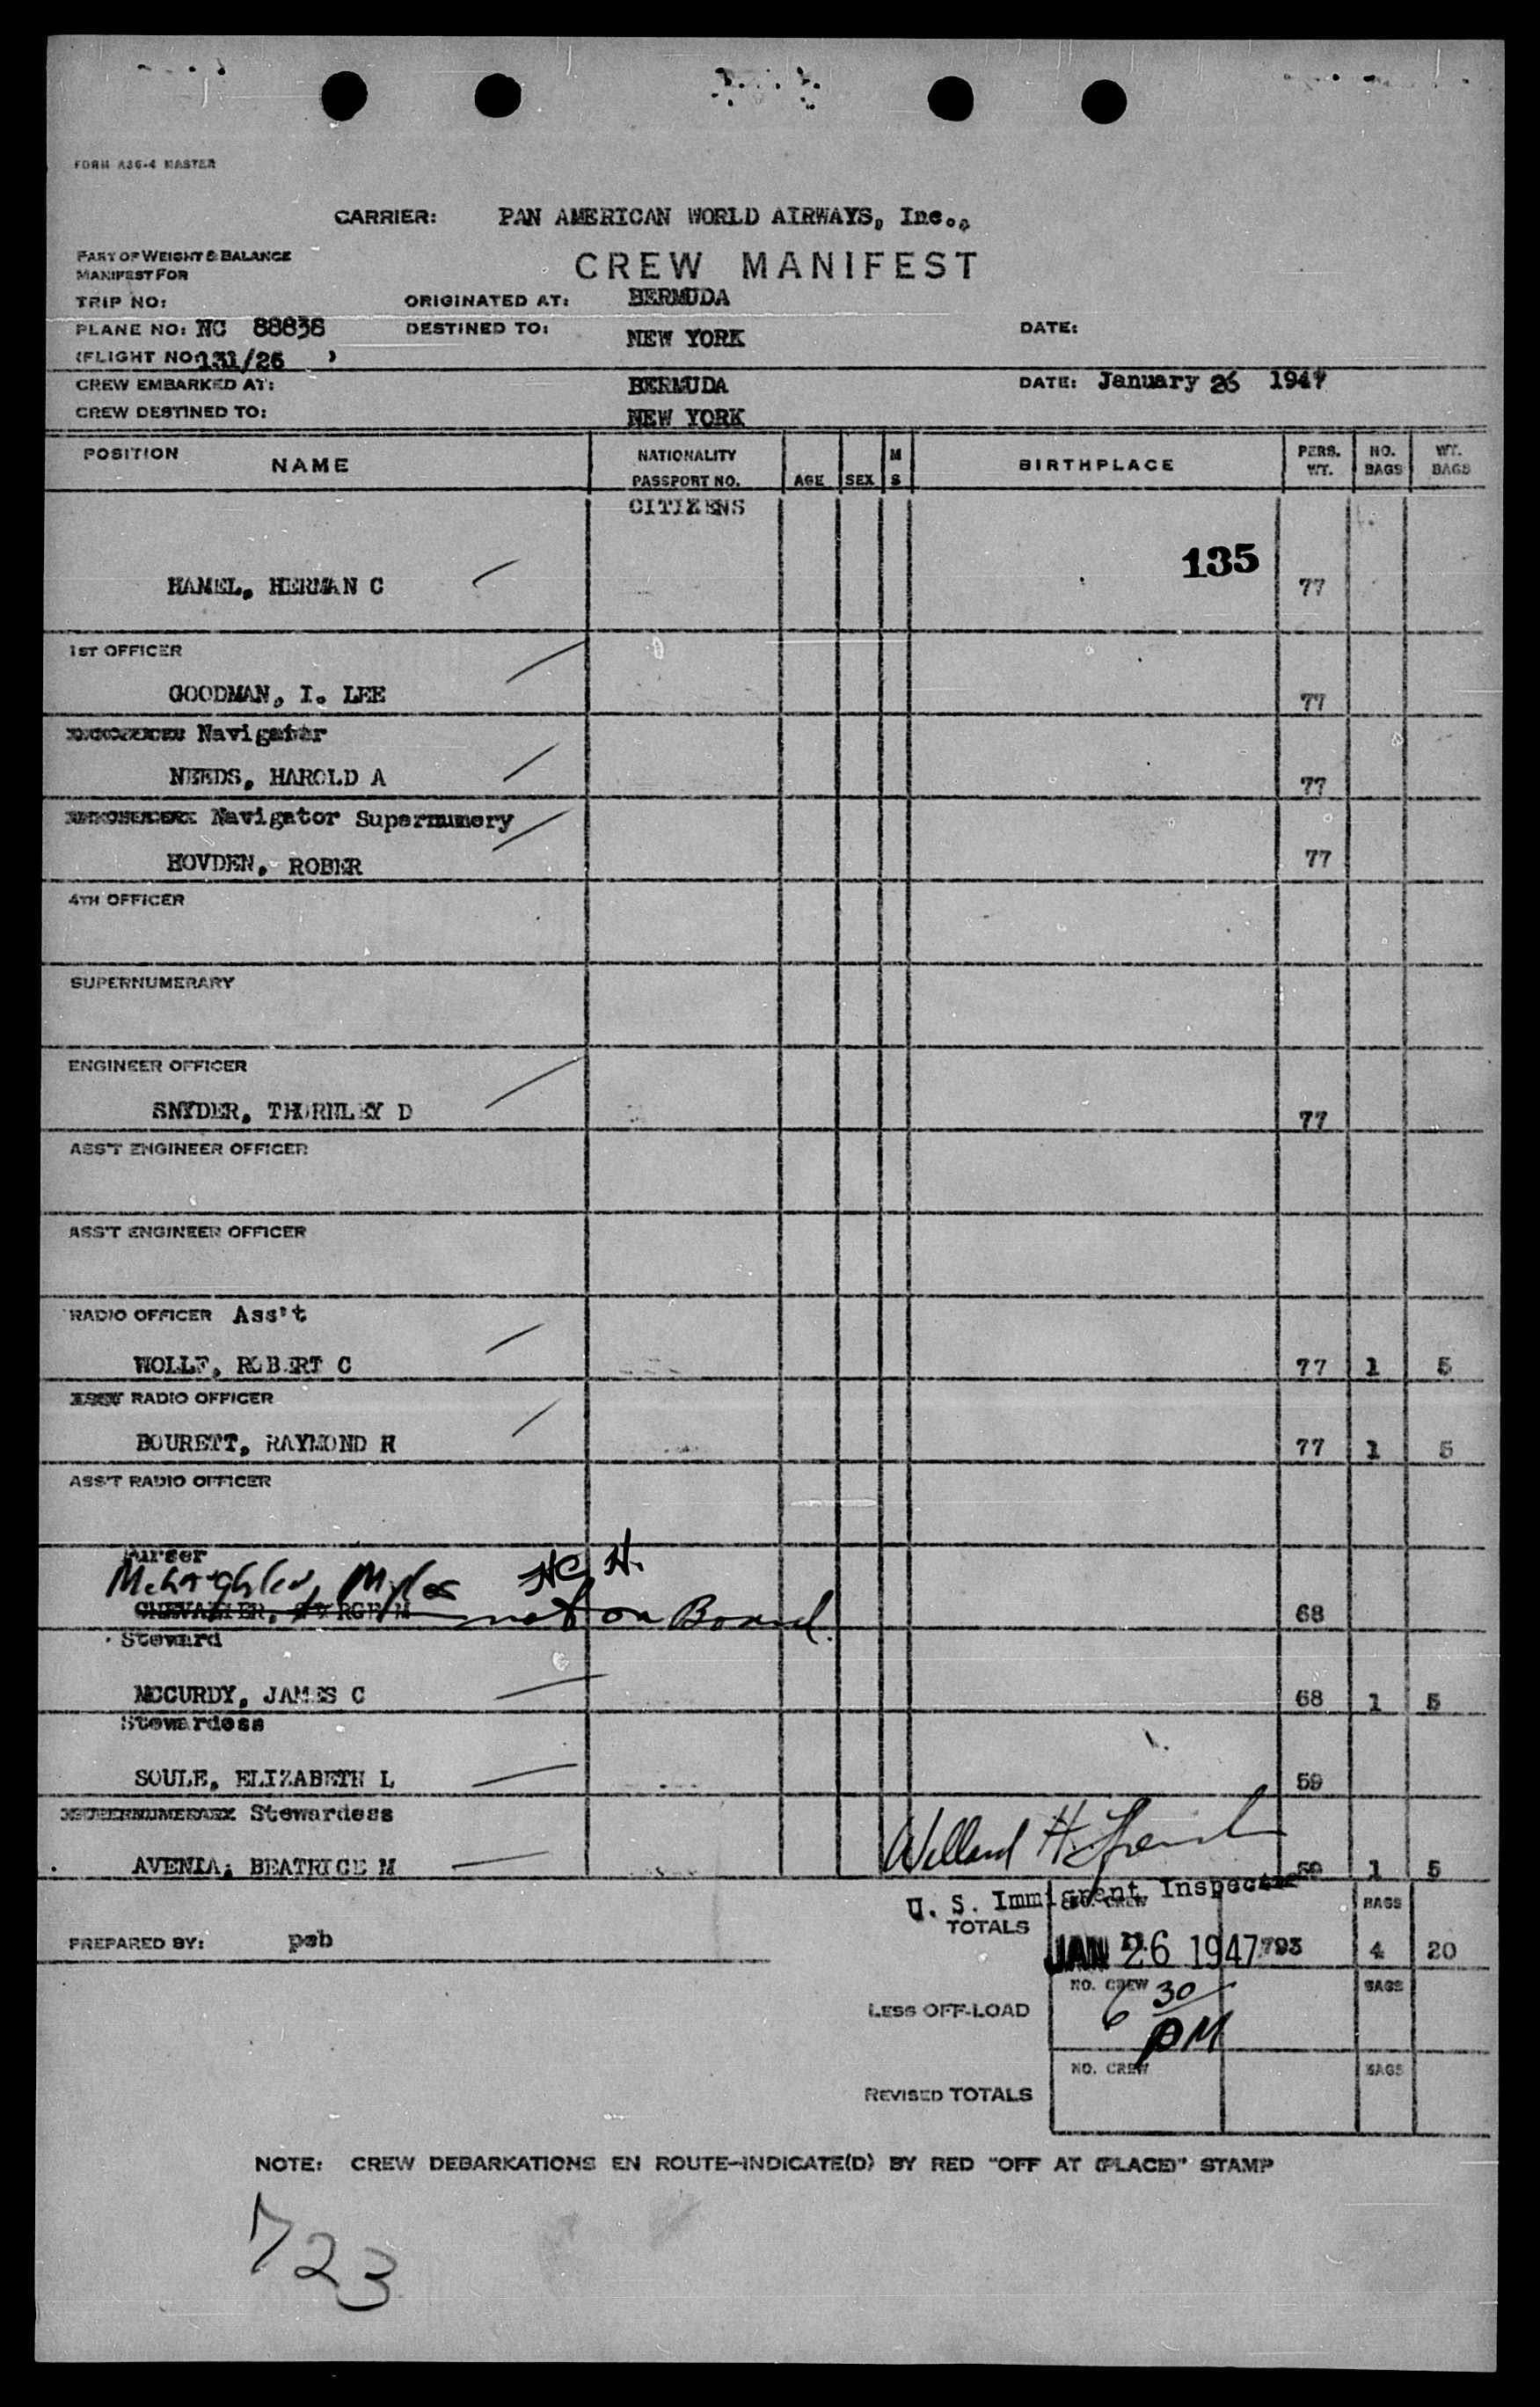 FORM A36-4 MASTER
CARRIER: PAN AMERICAN WORLD AIRWAYS, Inc.,
PART OF WEIGHT & BALANCE
MANIFEST FOR
CREW MANIFEST
TRIP NO: ORIGINATED AT: BERMUDA
PLANE NO: NC 88838 DESTINED TO: NEW YORK DATE:
(FLIGHT NO: 131/26 )
CREW EMBARKED AT: BERMUDA DATE: January 26 1947
CREW DESTINED TO: NEW YORK
POSITION NAME NATIONALITY PASSPORT NO. AGE SEX M S BIRTHPLACE PERS. WT. NO. BAGS WT. BAGS
CITIZENS
135
HAMEL, HERMAN C 77
1ST OFFICER
GOODMAN, I. LEE 77
Navigator
NEEDS, HAROLD A 77
Navigator Supernumery
HOVDEN, ROBER 77
4TH OFFICER
SUPERNUMERARY
ENGINEER OFFICER
SNYDER, THORNLEY D 77
ASS'T ENGINEER OFFICER
ASS'T ENGINEER OFFICER
RADIO OFFICER Ass't
WOLLF, ROBERT C 77 1 5
RADIO OFFICER
BOURETT, RAYMOND R 77 1 5
ASS'T RADIO OFFICER
Purser
McLaughlin, Myles HCH.
CHEVALIER, GEORGE M not on Board. 68
Steward
MCCURDY, JAMES C 68 1 5
Stewardess
SOULE, ELIZABETH L 59
SUPERNUMERARY Stewardess
AVENIA, BEATRICE M 59 1 5
Willard H.
U. S. Immigrant Inspector
NO. CREW BAGS
TOTALS
PREPARED BY: peb JAN 26 1947 11 793 4 20
NO. CREW BAGS
LESS OFF-LOAD 6 30 PM
NO. CREW BAGS
REVISED TOTALS
NOTE: CREW DEBARKATIONS EN ROUTE-INDICATE(D) BY RED "OFF AT (PLACE)" STAMP
723